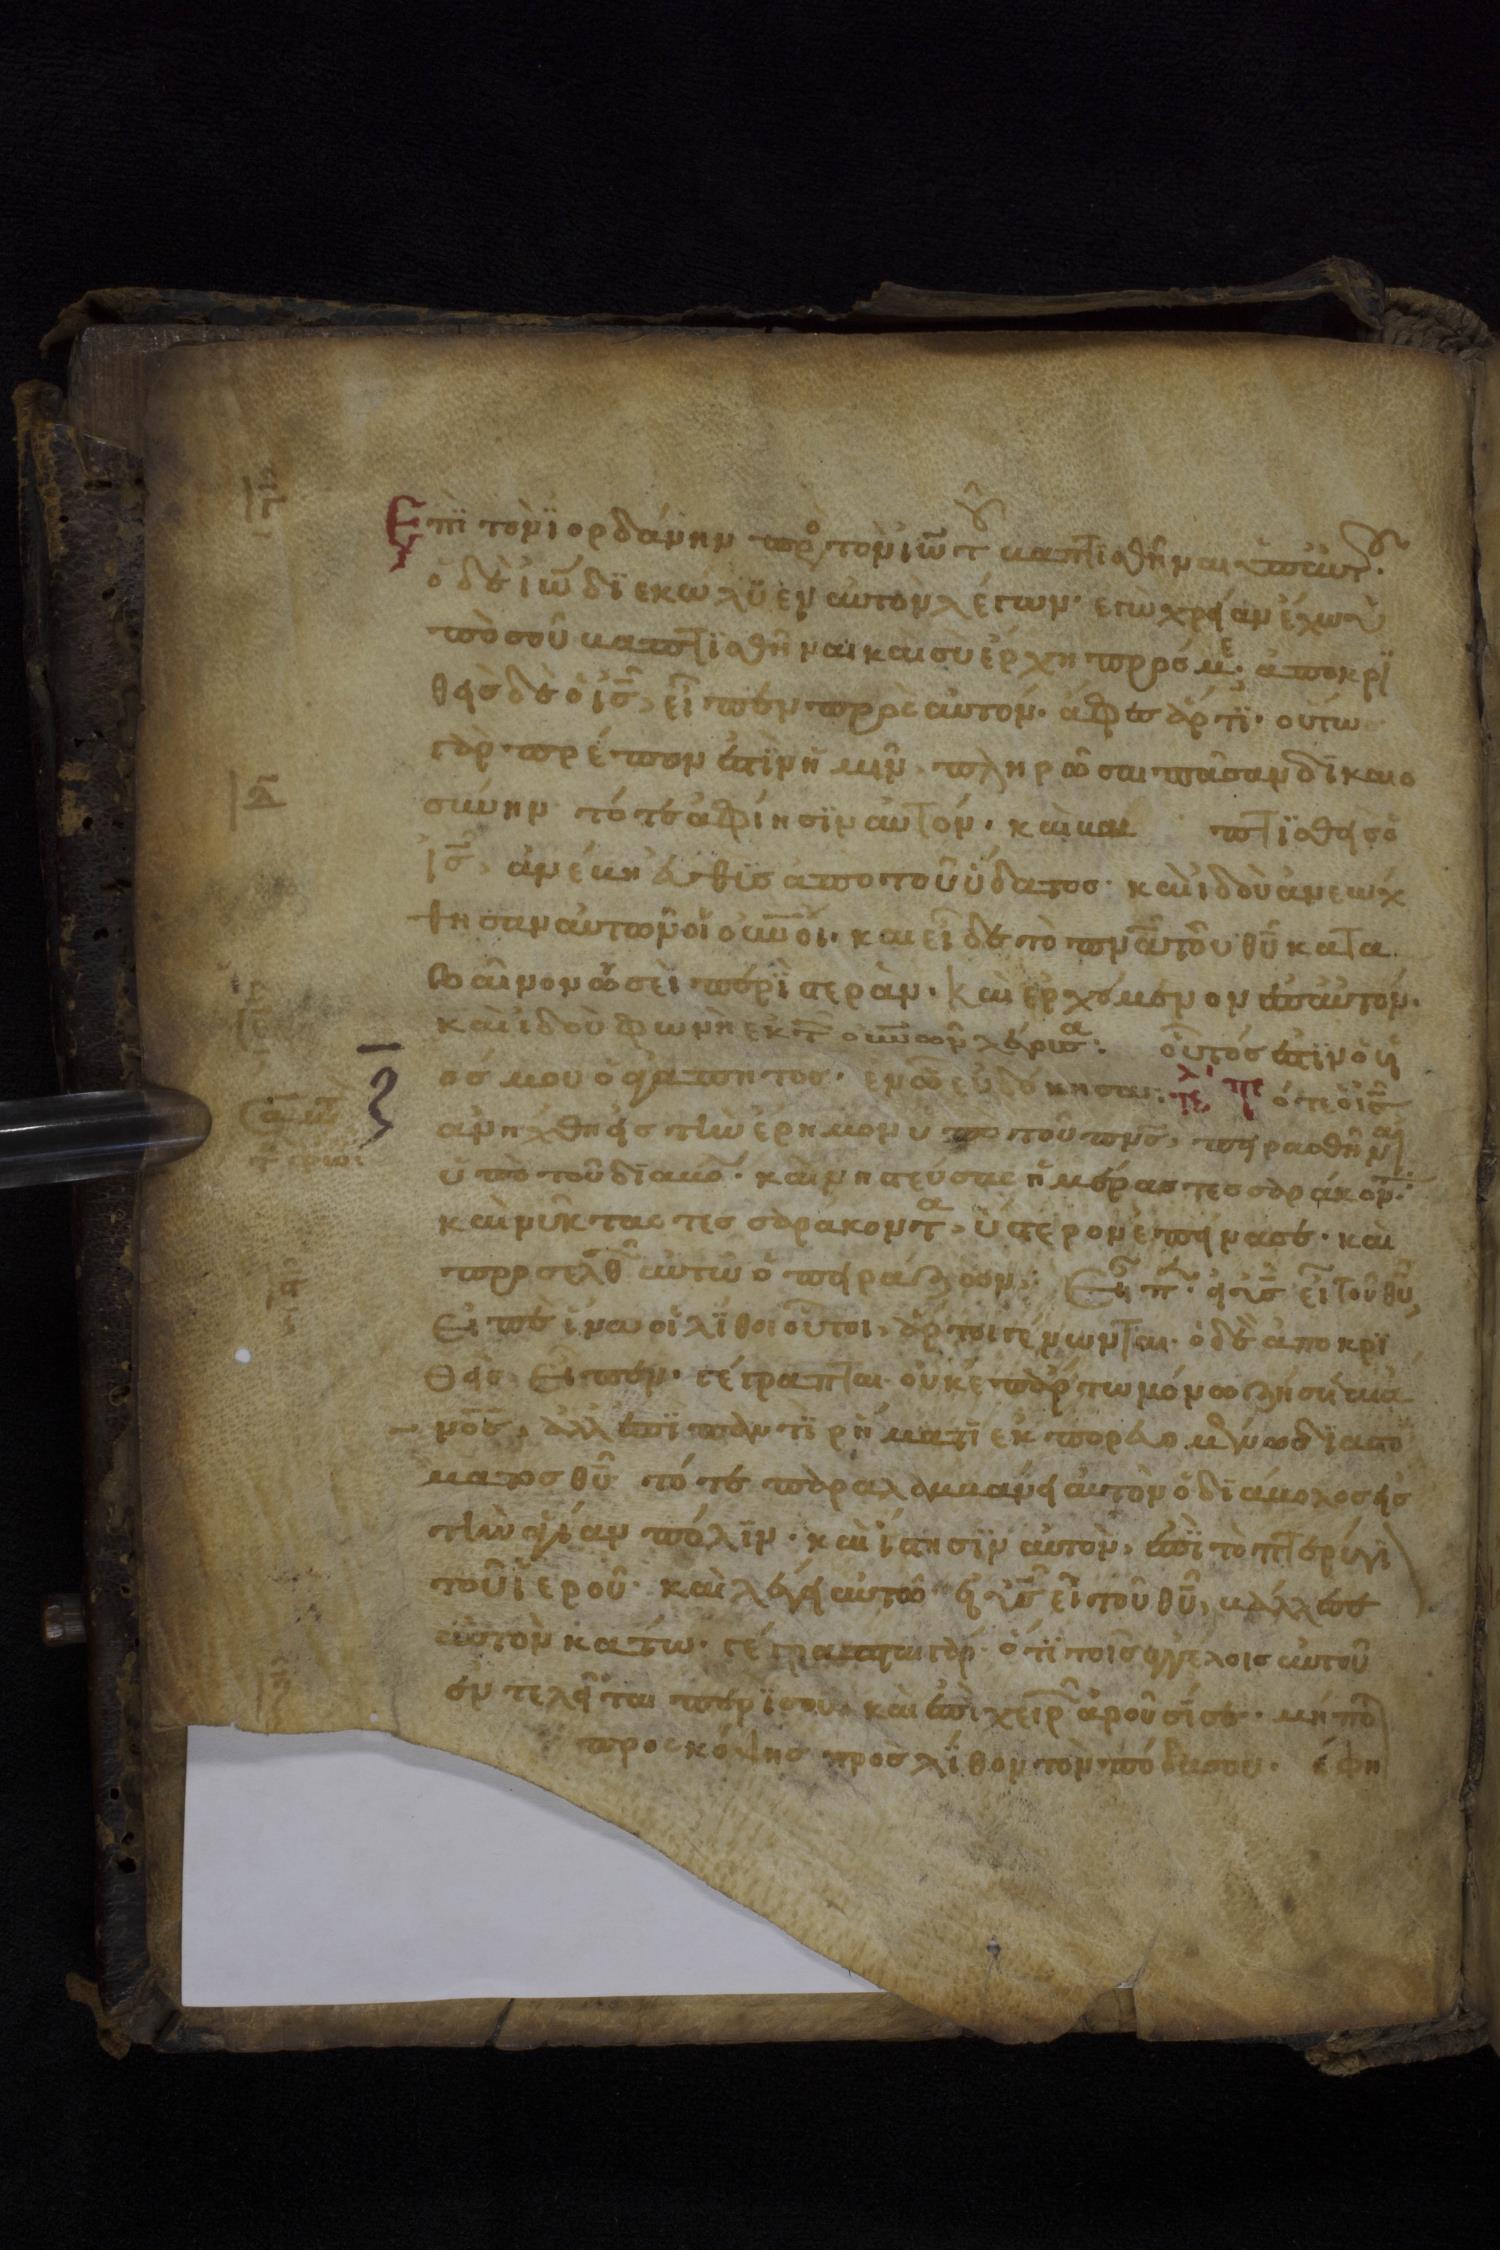 Επϊ τον ϊορδάνην πρὸ τὸν ἰω̅ τ̅ου βαπτϊσθῆναι ὑπ' αὐτοῦ·
ὁ δὲ ἰω̅ διεκώλϋεν αὐτὸν λέγων· εγὼ χρείαν ἔχω ὑ
πὸ σοῦ βαπτϊσθῆναι καὶ σὺ ἔρχη πρός με· ἀποκρϊ
θεὶς δὲ ὁ ι̅ς̅, εἶπεν πρὸς αὐτόν· ἄφες ἄρτϊ· οὕτως
γὰρ πρέπον ἐστϊν ἡμῖν, πληρῶσαι πᾶσαν δϊκαιο
σύνην τότε ἀφίησϊν αὐτόν· καὶ βα πτϊσθεὶς ὁ
ι̅ς̅, ἀνέβη εὐθὺς ἀπο τοῦ ὕδατος· καὶ ἰδοὺ ἀνεώχ
θησαν αὐτῶ οἱ οὐ̅νοι· καὶ εἶδε τὸ πν̅α̅ τοῦ θ̅υ̅ κατα
βαῖνον ὡσεὶ περϊστερὰν· καὶ ἐρχόμενον ἐπ' αὐτόν·
καὶ ἰδοὺ φωνὴ ἐκ τ̅ οὐ̅νῶν λέγουσα: οὗτός ἐστϊν ὁ υἱ
ός μου ὁ ἀγαπητος· ἐν ὧ εὐδόκησα: τε̅ ὁ τε ὁ ι̅ς̅
ἀνήχθη εἰς τὴν ἔρημον υπο τοῦ πν̅ς̅, πειρασθῆναι
ὑπὸ τοῦ διαβο̅· καὶ νηστεύσας ἡμέρας τεσσαράκοντ̅·
καὶ νύκτας τεσσαράκοντα, ὕστερον ἐπείνασε· καὶ
προσελθὼν αὐτῶ ὁ πειράζων: Ειπ̅· εἰ υ̅ς̅ εἶ τοῦ θ̅υ̅,
Εἰπὲ ἵνα οἱ λίθοι οὗτοι, ἄρτοι γένωνται· ὁ δὲ ἀποκρϊ
θεὶς Εἶπεν· γέγραπται οὐκ επ' ἄρτω μόνω ζήσεται ἄ
νο̅ς̅, ἀλλ' ἐπϊ παντϊ ρήματϊ ἐκπορευομένω δϊα στο
ματος θ̅υ̅ τότε παραλαμβάνει αὐτὸν ὁ δϊάβολος εἰς
τὴν ἁγίαν πόλϊν· καὶ ἵστησϊν αὐτὸν, ἐπϊ τὸ πτερύγι
τοῦ ἱεροῦ· καὶ λέγει αὐτῶ εἰ υ̅ς̅ εἶ τοῦ θ̅υ̅, βάλλε σε
αὐτὸν κάτω· γέγραπται γὰρ· ὅτϊ τοῖς ἀγγέλοις αὐτοῦ
ἐντελεῖται περϊ σου, καὶ ἐπὶ χειρῶν ἀροῦσϊ σε· μή πο
προσκόψης πρὸς λίθον τὸν πόδα σου· ἔφη